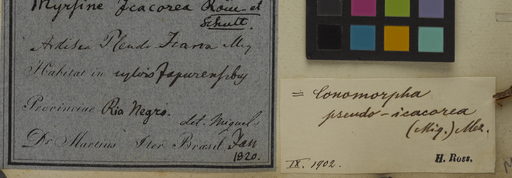 Myrsine Icacorea Roem et
Schult.
Ardisia Mig
Habitat in sylvis Japurensibus
Provinciae Rio Negro.
det. Miquel
Dr Martius Iter Brasil. Jan
1820.
= Conomorpha
pseudo-icacorea
(Miq.) Mez.
IX. 1902.
H. Ross.